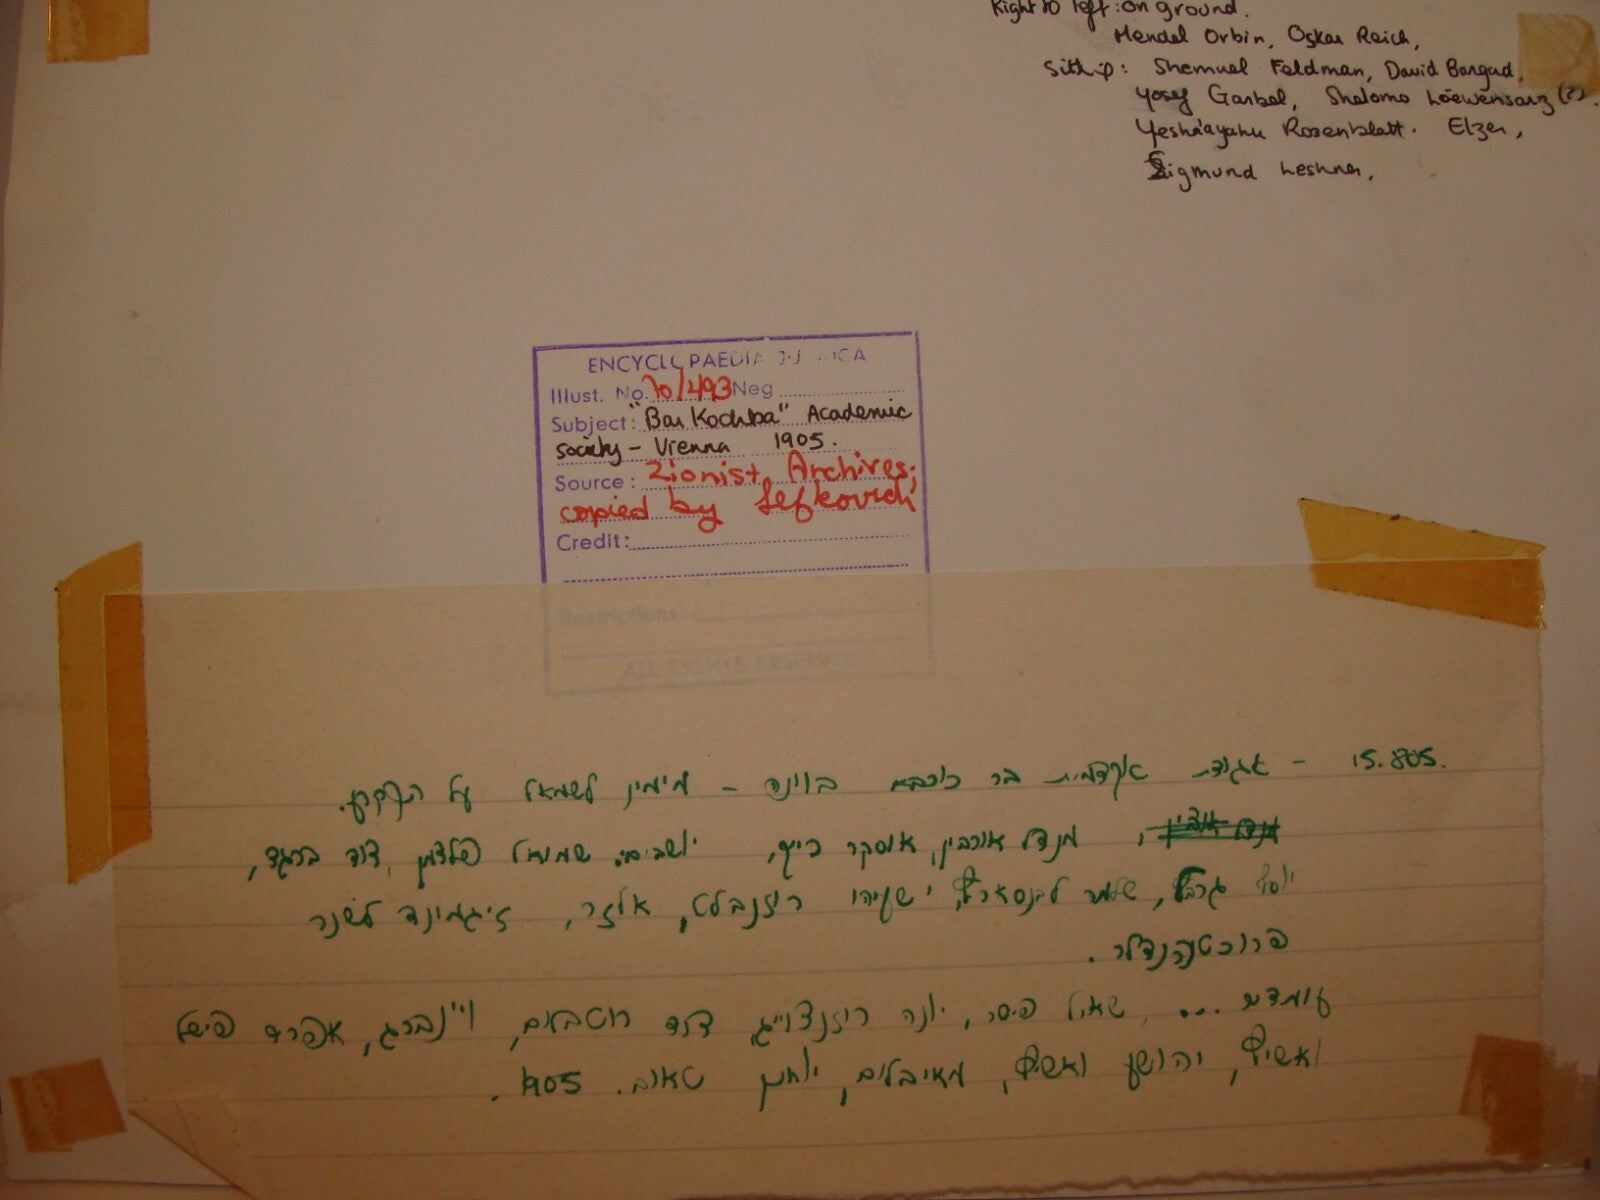 Right to left: on ground.
Mendel Orbin, Oskar Reich,
Sitting: Shemuel Feldman, David Bargad,
Yosef Garbel, Shelomo Löewensarz (?).
Yesha'ayahu Rosenblatt. Elzer,
Sigmund Leshner,
ENCYCLOPAEDIA J ICA
Illust. No. 70/493 Neg
Subject: "Bar Kochba" Academic
society - Vienna 1905.
Source: Zionist Archives;
copied by Lefkovich
Credit:
Restrictions:
ALL RIGHTS RESERVED
15.805. - אגודת אקדמית בר כוכבא בוינה - מימין לשמאל על הקרקע.
מנדל אורבין, אוסקר רייך, יושבים: שמואל פלדמן, דוד ברגד,
יוסף גרבל, שלמה ישעיהו רוזנבלט, אלזר, זיגמונד לשנר
פרוכטהנדלר.
עומדים ... שאול פיסר, יונה רוזנצוייג, דוד רוטבלום, ויינברג, אפרים פישל
ואשיץ, יהושע ואשיץ, מאיבלום, יוחנן טאוב. 1905.